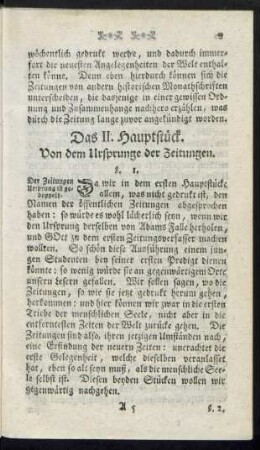 wöchentlich gedrukt werde, und dadurch immer-
fort die neuesten Angelegenheiten der Welt enthal-
ten könne. Denn eben hierdurch können sich die
Zeitungen von andern historischen Monathschriften
unterscheiden, die dasjenige in einer gewissen Ord-
nung und Zusammenhange nachhero erzählen, was
durch die Zeitung lange zuvor angekündigt worden.
Das II. Hauptstück.
Von dem Ursprunge der Zeitungen.
§. 1.
Der Zeitungen
Ursprung ist ge-
doppelt.
Da wir in dem ersten Hauptstücke
allem, was nicht gedrukt ist, den
Namen der öffentlichen Zeitungen abgesprochen
haben: so würde es wohl lächerlich seyn, wenn wir
den Ursprung derselben von Adams Falle herholen,
und GOtt zu dem ersten Zeitungsverfasser machen
wollten. So schön diese Ausführung einem jun-
gen Studenten bey seiner ersten Predigt dienen
könnte: so wenig würde sie an gegenwärtigem Orte
unsern Lesern gefallen. Wir setzen sagen, wo die
Zeitungen, so wie sie jetzt gedrukt herum gehen,
herkommen; und hier können wir zwar in die ersten
Triebe der menschlichen Seele, nicht aber in die
entferntesten Zeiten der Welt zurücke gehen. Die
Zeitungen sind also, ihren jetzigen Umständen nach,
eine Erfindung der neuern Zeiten: unerachtet die
erste Gelegenheit, welche dieselben veranlasset
hat, eben so alt seyn muß, als die menschliche See-
le selbst ist. Diesen beyden Stücken wollen wir
gegenwärtig nachgehen.
A 5 §. 2.